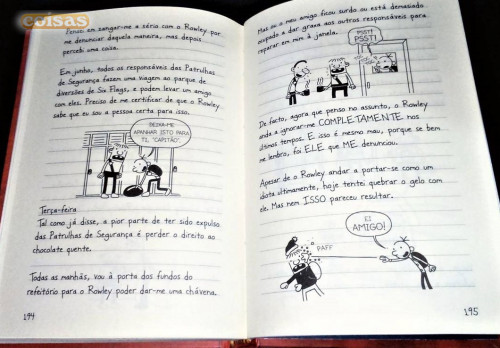 coisas
Pensei em zangar-me a sério com o Rowley por
me denunciar daquela maneira, mas depois
percebi uma coisa.
Em junho, todos os responsáveis das Patrulhas
de Segurança fazem uma viagem ao parque de
diversões de Six Flags, e podem levar um amigo
com eles. Preciso de me certificar de que o Rowley
sabe que eu sou a pessoa certa para isso.
DEIXA-ME
APANHAR ISTO PARA
TI, "CAPITÃO".
Terça-feira
Tal como já disse, a pior parte de ter sido expulso
das Patrulhas de Segurança é perder o direito ao
chocolate quente.
Todas as manhãs, vou à porta dos fundos do
refeitório para o Rowley poder dar-me uma chávena.
194
Mas ou o meu amigo ficou surdo ou está demasiado
ocupado a dar graxa aos outros responsáveis para
reparar em mim à janela.
PSST!
PSST!
De facto, agora que penso no assunto, o Rowley
anda a ignorar-me COMPLETAMENTE nos
últimos tempos. E isso é mesmo mau, porque se bem
me lembro, foi ELE que ME denunciou.
Apesar de o Rowley andar a portar-se como um
idiota ultimamente, hoje tentei quebrar o gelo com
ele. Mas nem ISSO pareceu resultar.
EI
AMIGO!
PAFF
195